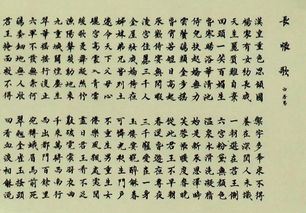 長恨歌
白居易
漢皇重色思傾國 御宇多年求不得
楊家有女初長成 養在深閨人未識
天生麗質難自棄 一朝選在君王側
回頭一笑百媚生 六宮粉黛無顏色
春寒賜浴華清池 溫泉水滑洗凝脂
侍兒扶起嬌無力 始是新承恩澤時
雲鬢花顏金步搖 芙蓉帳暖度春宵
春宵苦短日高起 從此君王不早朝
承歡侍宴無閑暇 春從春遊夜專夜
後宮佳麗三千人 三千寵愛在一身
金屋妝成嬌侍夜 玉樓宴罷醉和春
姊妹弟兄皆列土 可憐光彩生門戶
遂令天下父母心 不重生男重生女
驪宮高處入青雲 仙樂風飄處處聞
緩歌慢舞凝絲竹 盡日君王看不足
漁陽鼙鼓動地來 驚破霓裳羽衣曲
九重城闕煙塵生 千乘萬騎西南行
翠華搖搖行復止 西出都門百餘里
六軍不發無奈何 宛轉蛾眉馬前死
花鈿委地無人收 翠翹金雀玉搔頭
君王掩面救不得 回看血淚相和流